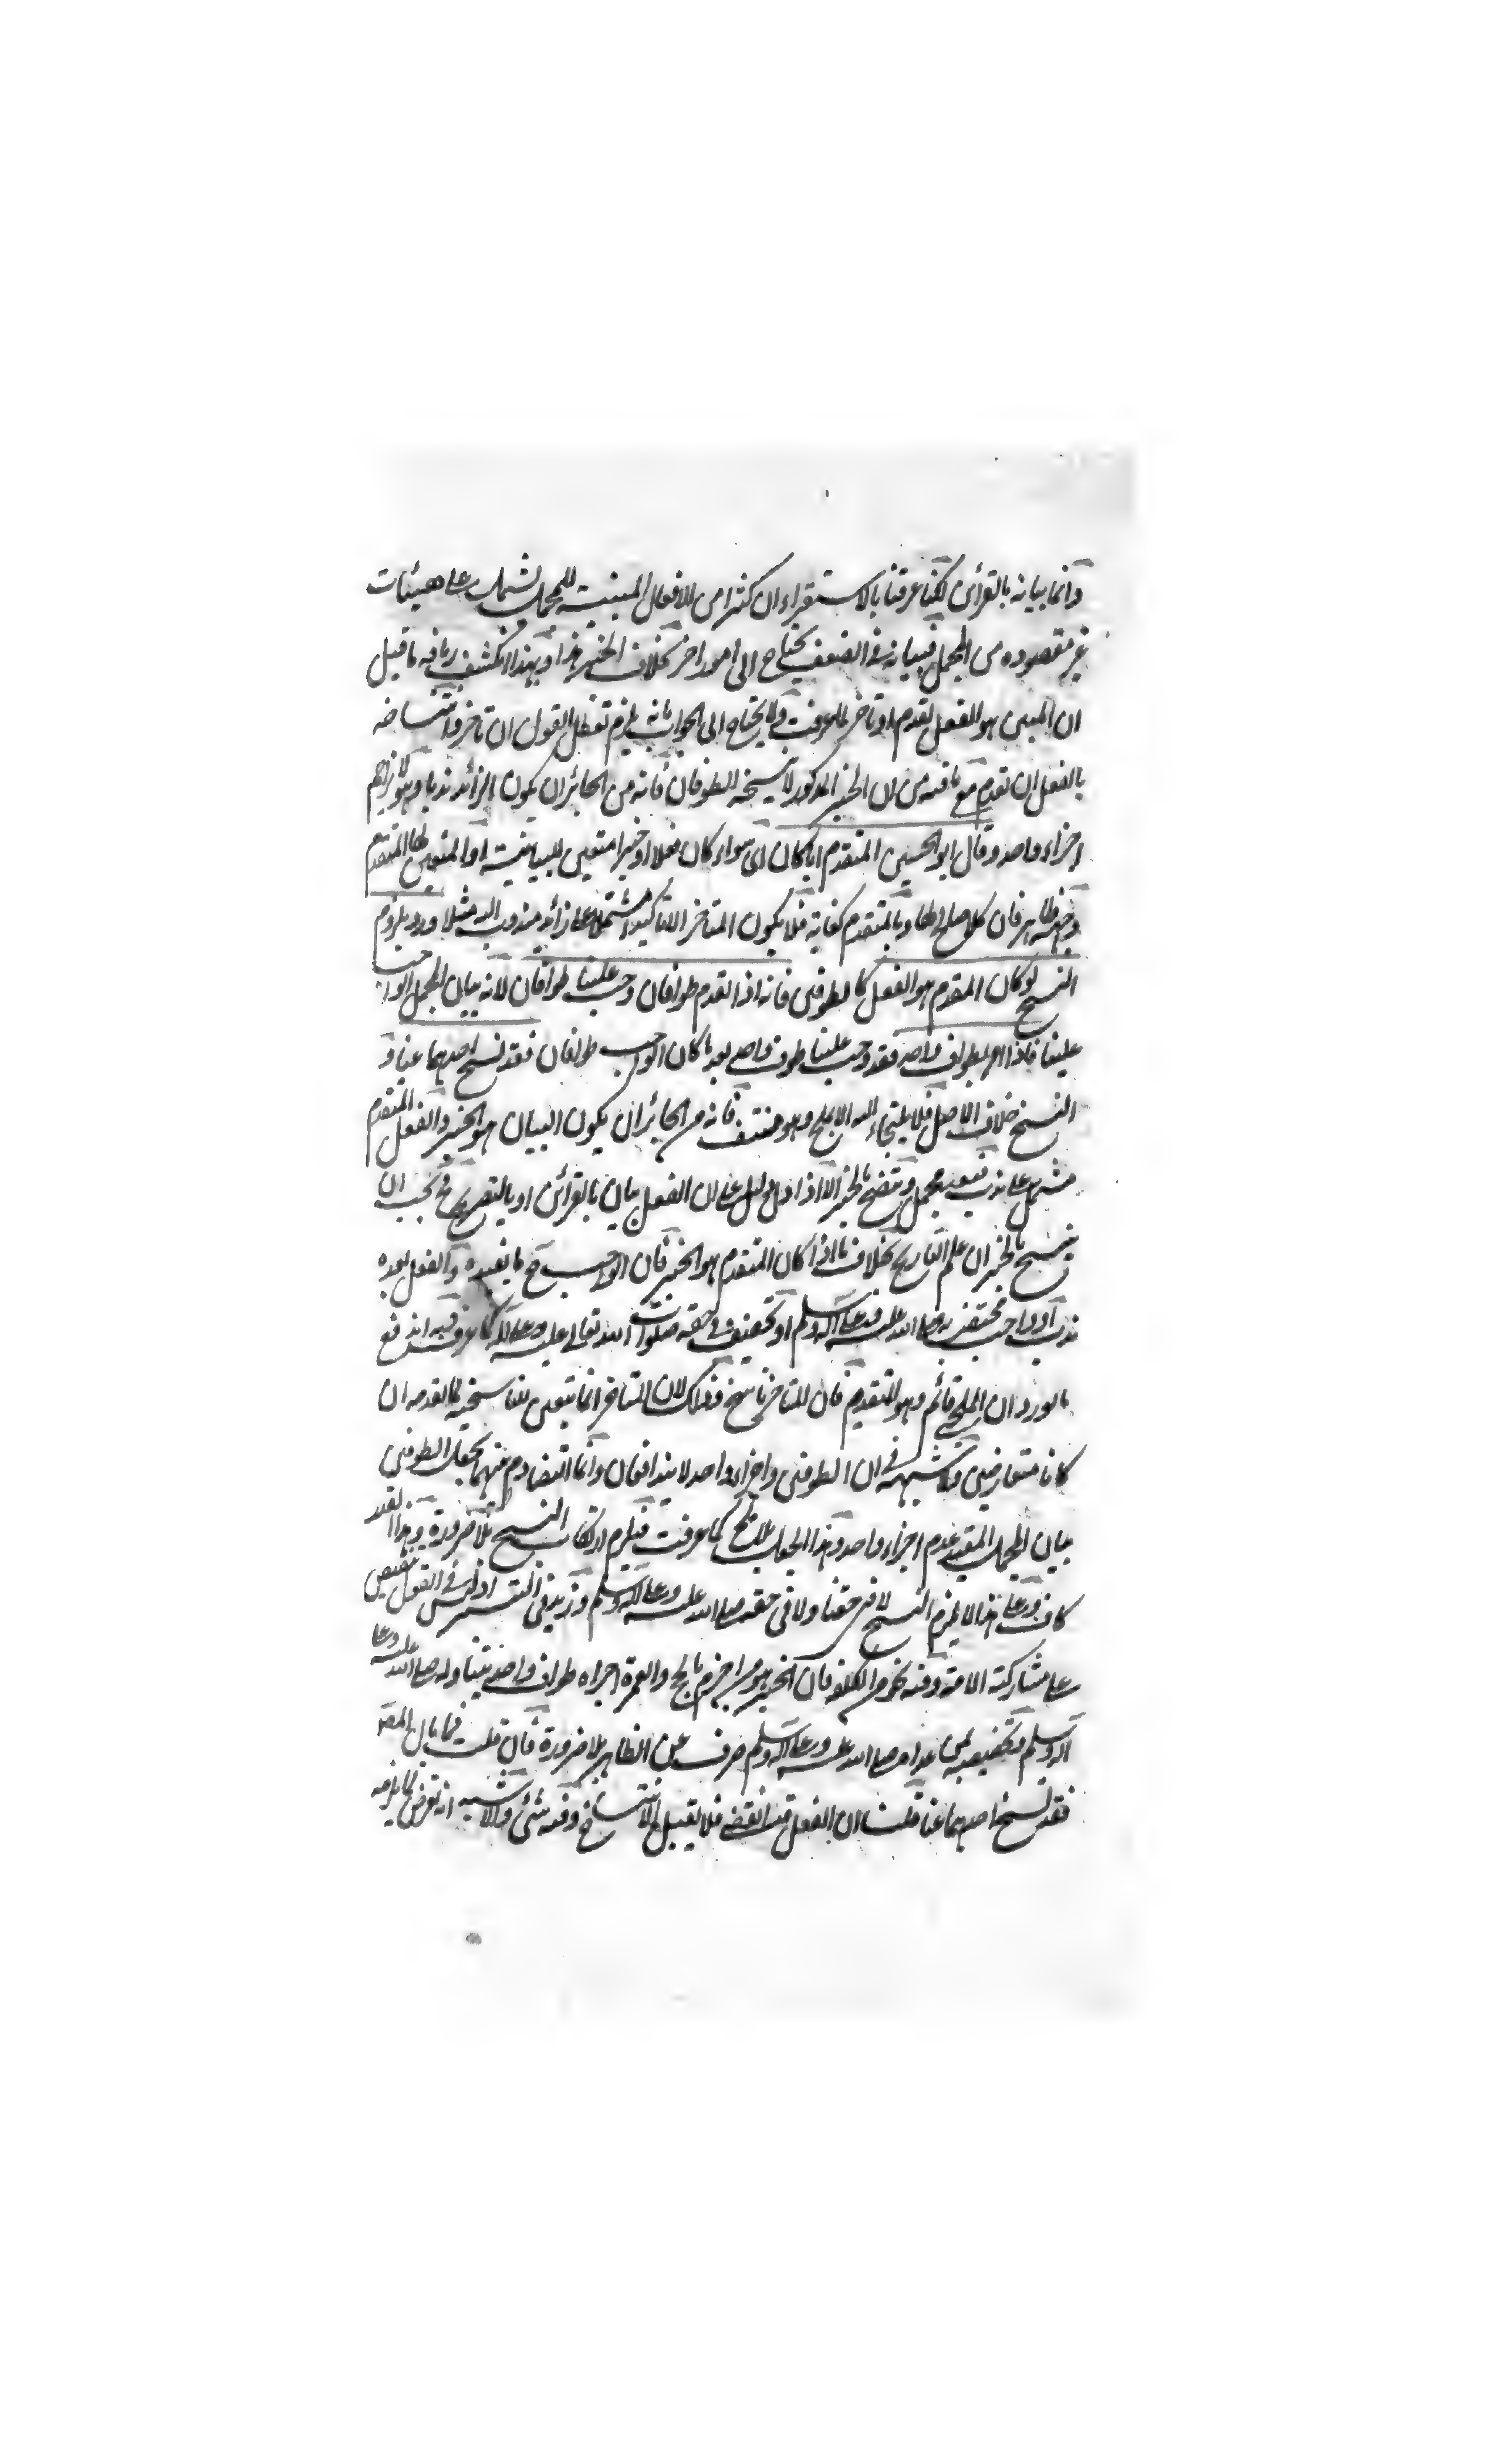 وانما بيانه بالقرأئن لكنا عرفنا بالاستقراء ان كثيرا من الافعال المبينة للمجمل تشتمل على هيئات
غير مقصودة من المجمل فبيانه في الضعف يحتاج الى امور اخر بخلاف الخبر هذا وبهذا انكشف زيافة ما قيل
ان المبين هو الفعل تقدم او تأخر لما عرفت ولا يحتاج الى الجواب بانه يلزم تعطل القول ان تأخر وانتساخه
بالفعل ان تقدم مع ما فيه من ان الخبر المذكور لا ينسخه الطوافان فانه من الجائز ان يكون الزائد ندبا وهو لا يزاحم
اجزاء واحد وقال ابو الحسين المتقدم ايا كان اي سواء كان فعلا او خبرا متعين للبيانية او المتعين لها المتقدم
وجهه ظاهر فان كلا صالح لها وبالمتقدم كفاية فلا يكون المتأخر الا تاكيدا مشتملا على زائد مندوب اليه مثلا ورد بلزوم
النسخ لو كان المقدم هو الفعل كالطوفين فانه اذا تقدم طوافان وجب علينا طوافان لانه بيان المجمل الواجب
علينا فاذا امر بطواف واحد فقد وجب علينا طوف واحد بعد ما كان الواجب طوافان فقد نسخ احدهما عنا و
النسخ خلاف الاصل فلا يلتجاء اليه الا بملجئ وهو منتف فانه من الجائز ان يكون البيان هو الخبر والفعل المتقدم
مشتمل على ندب فبعد مجمل ويتضح بالخبر الا اذا دل دليل على ان الفعل بيان بالقرأئن او بالتصريح فح يجب ان
ينسخ بالخبر ان علم التاريخ بخلاف ما اذا كان المتقدم هو الخبر فان الواجب ح ما يفيده والفعل بعده
ندب او واجب مختص به صلى الله عليه وعلى آله وسلم او تخفيف في حقه صلوات الله تعالى عليه وعلى آله كما عرف وبه اندفع
ما اورد ان الملجئ قائم وهو التقدم فان المتأخر ناسخ وذلك لان المتأخر انما يتعين للناسخية لما تقدمه ان
كانا متعارضين ولا شبهة في ان الطوفين واجزاء واحد لا يتدافعان وانما التصادم منهما بجعل الطوفين
بيان المجمل المفيد عدم اجزاء واحد وهذا الجعل بلا ملجئ كما عرفت فيلزم ارتكاب النسخ بلا ضرورة وهذا القدر
كاف وعلى هذا لا يلزم النسخ لا في حقنا ولا في حقه صلى الله عليه وعلى آله وسلم وزيد في التفسير اذ ليس في القول تنصيص
على مشاركته الامة وفيه نحو من الكلفة فان الخبر هو من احرم بالحج والعمرة اجزاه طواف واحد يتناوله صلى الله عليه وعلى
آله وسلم فتخصيصه بمن عداه صلى الله عليه وعلى آله وسلم صرف عن الظاهر بلا ضرورة فان قلت فما بال المصـ
فقد نسخ احدهما عنا قلت ان الفعل قد انقضى فلا يقبل الانتساخ وفيه شئ والاشبه انه تعرض لما يلزمه